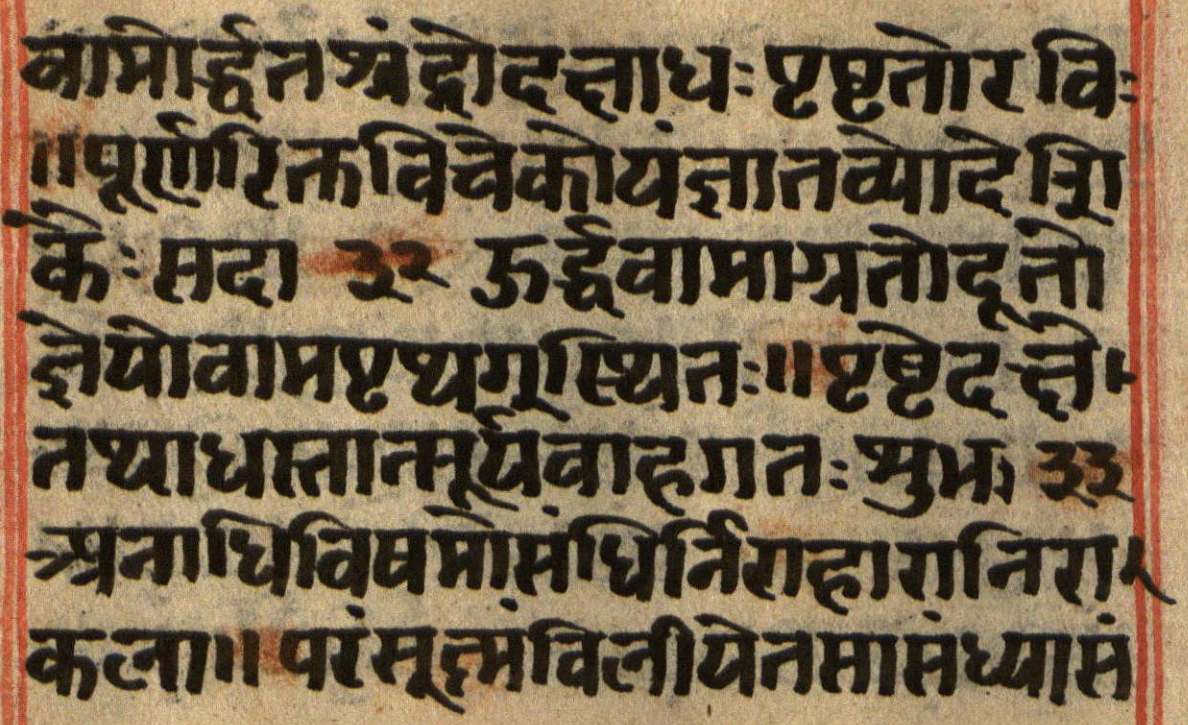 वामोर्द्धतश्चंद्रोदक्षाधः पृष्टतोरविः
॥पूर्णरिक्तविवेकोयंज्ञातव्योदेशि
कैः सदा ३२ ऊर्द्धवामाग्रतोदूतो
ज्ञेयोवामपृथगूस्थितः॥पृष्टेदक्षे
तथाधस्तात्सूर्यवाहगतः शुभः ३३
अनाधिविषमोसंधिर्निराहारानिरा
कला॥ परंसूक्ष्मविलीयेतसासंध्यासं